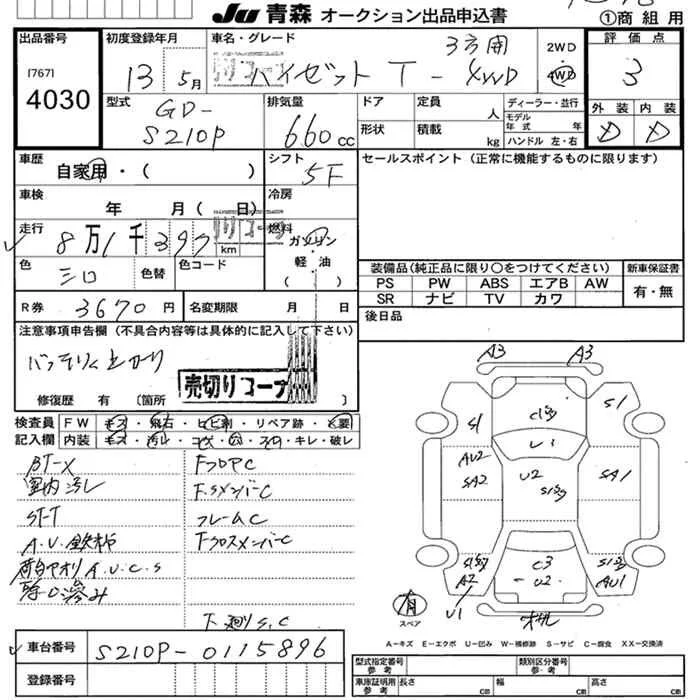 JU 青森 オークション出品申込書
①商組用
出品番号
[767]
4030
初度登録年月
13 5月
車名・グレード
三方開
ハイゼット T - 4WD
2WD
4WD
評価点
3
外装 内装
D D
型式
GD-
S210P
排気量
660 cc
ドア
定員
人
形状
積載
kg
ディーラー・並行
モデル
年式 年
ハンドル 左・右
車歴
自家用・( )
シフト
5F
セールスポイント(正常に機能するものに限ります)
車検
年 月( 日)
冷房
走行
8万1千397
km
燃料
ガソリン
軽・油
( )
色
シロ
色替
色コード
R券
3670 円
名変期限 月 日
装備品(純正品に限り○をつけてください)
新車保証書
PS PW ABS エアB AW
SR ナビ TV カワ
有・無
後日品
注意事項申告欄(不具合内容等は具体的に記入して下さい)
バッテリー上がり
売切りコーナー
修復歴 有 〔箇所
検査員
記入欄
FW キズ・飛石・ヒビ割・リペア跡・X要
内装 キズ・汚レ・コゲ・穴・スレ・キレ・破レ
BT-X
室内汚レ
ST-T
A.U.鉄板
荷台アオリA.U.C.S
FフロアC
F.SメンバーC
フレームC
FクロスメンバーC
下廻りS,C
A3 A3
S1
AU2
SA2
C1S3
U1
U2
S1S3
S1
SA1
C3
U2
A2
U1
AU1
有
スペア
A−キズ E−エクボ U−凹み W−補修跡 S−サビ C−腐食 XX−交換済
車台番号
S210P-0115896
登録番号
型式指定番号
参考
類別区分番号
参考
車庫証明用
参考
長さ cm
幅 cm
高さ cm